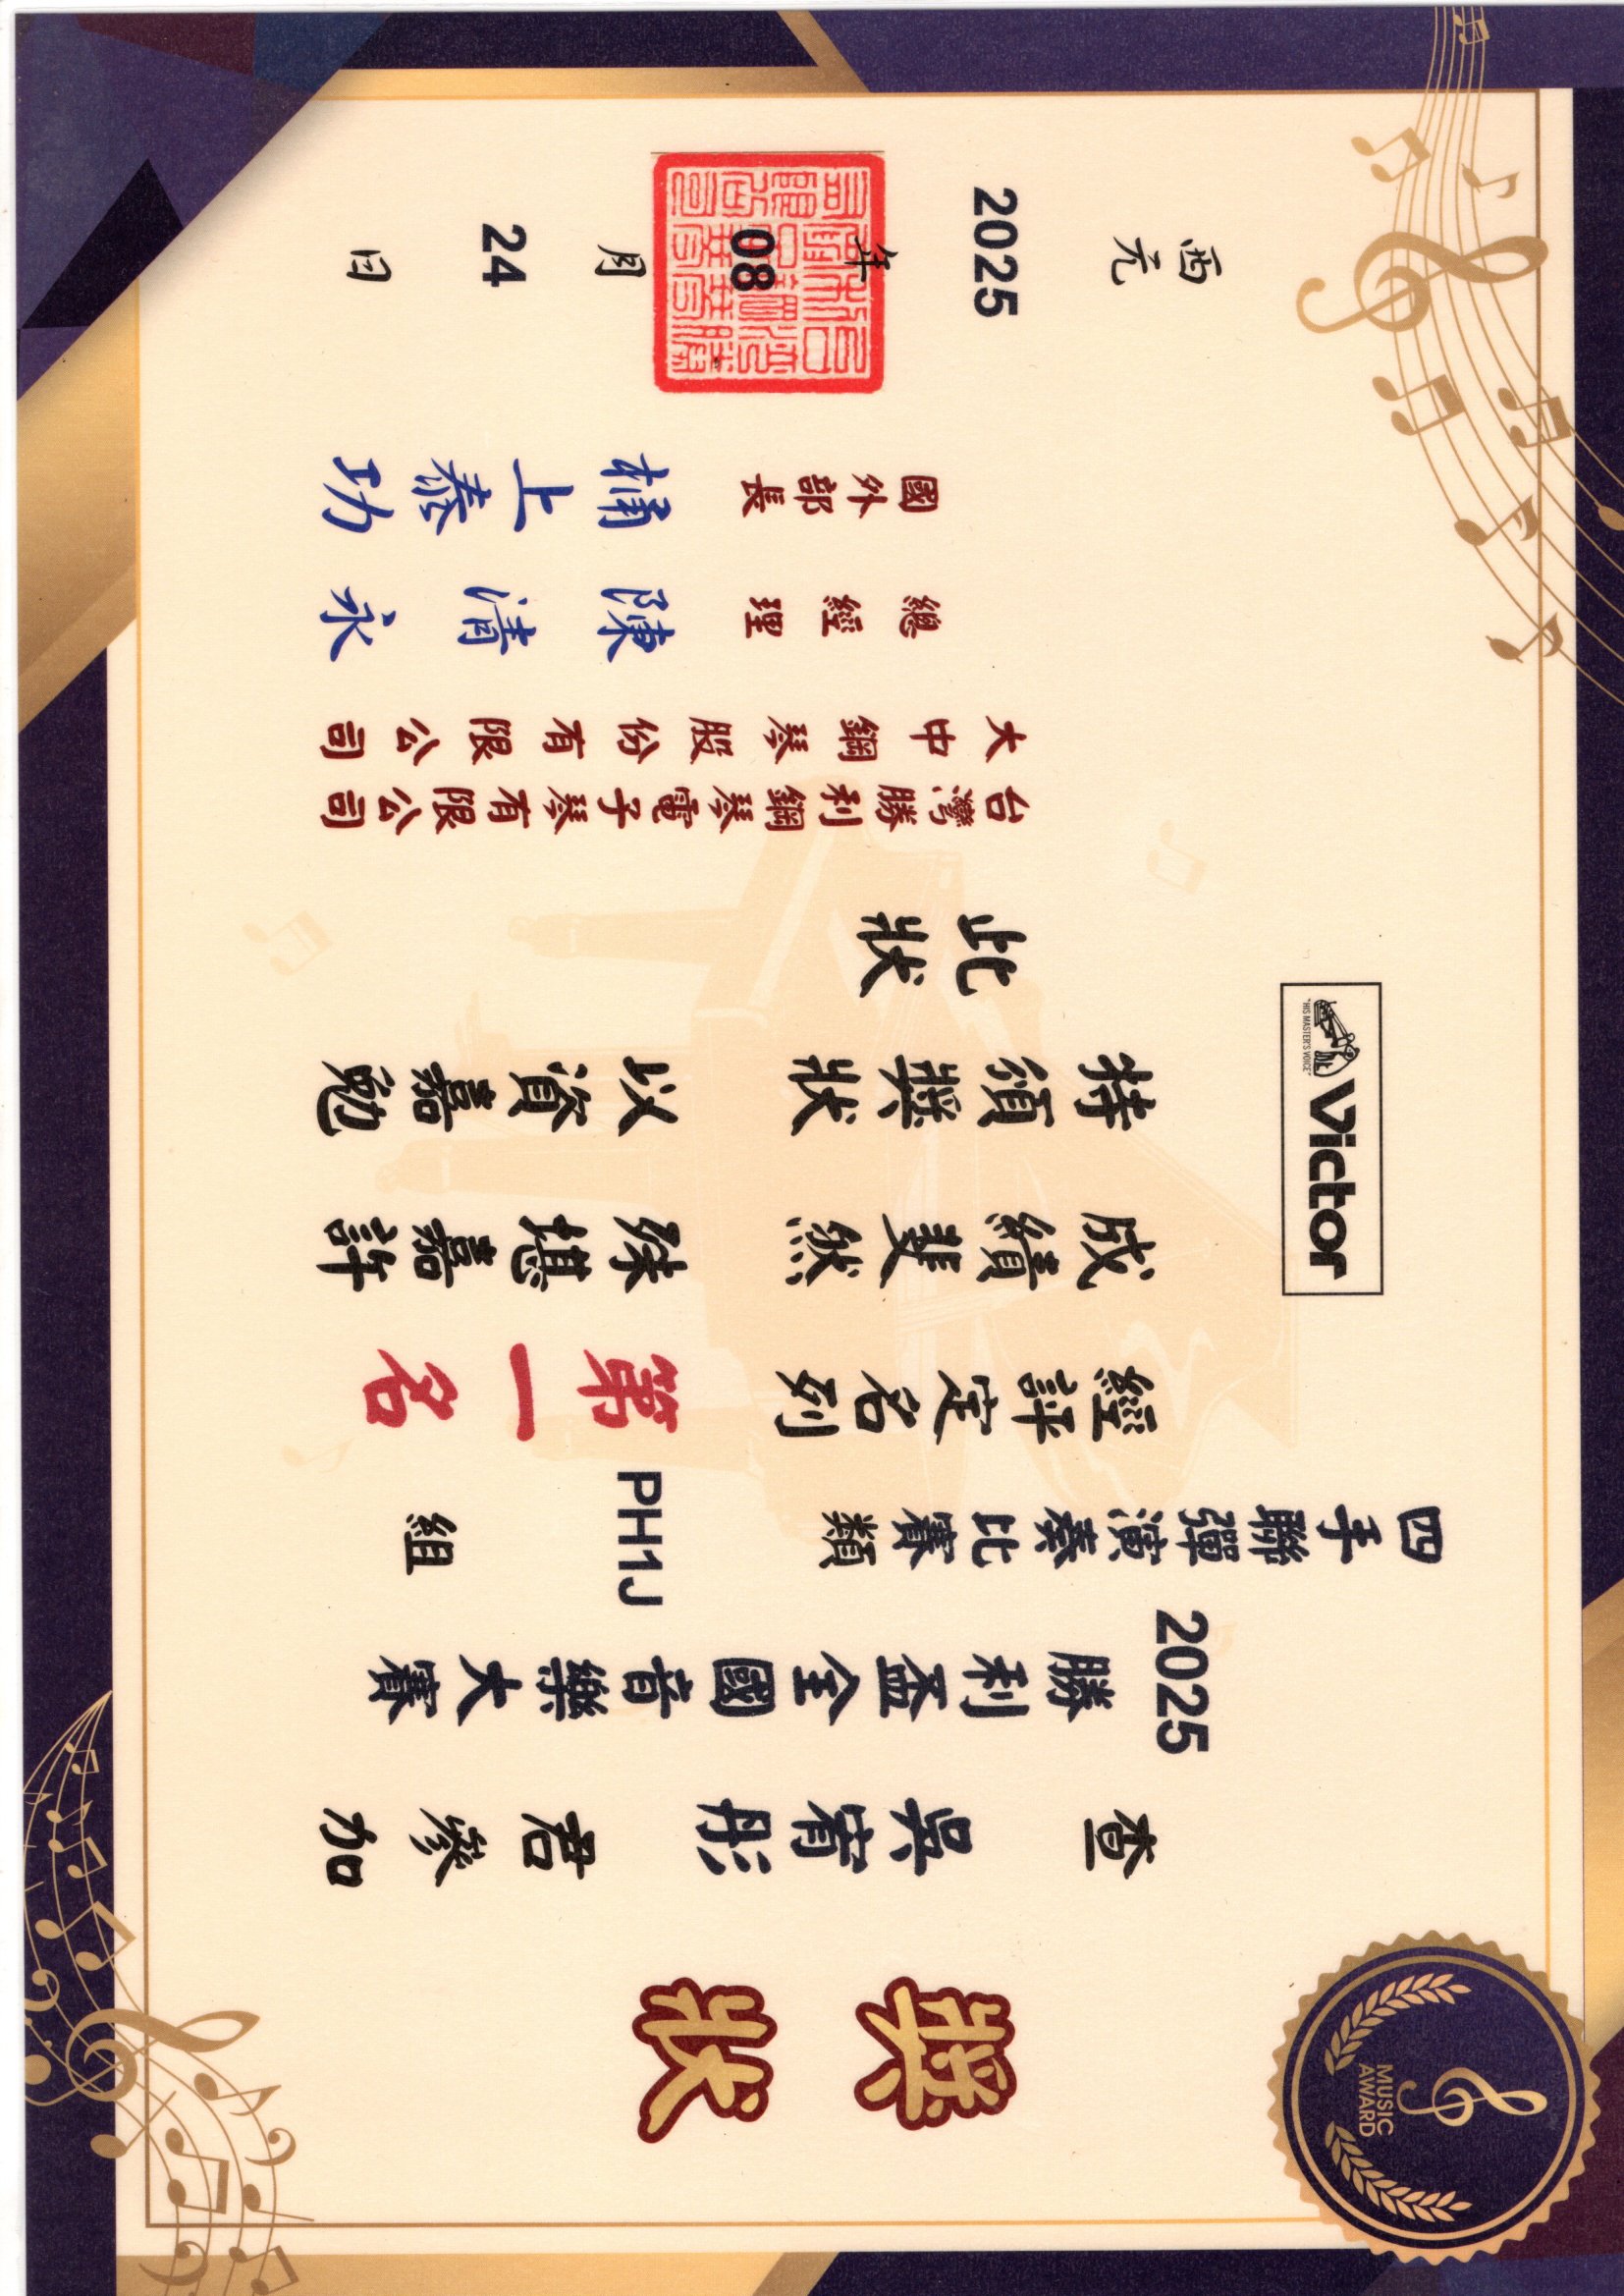 獎狀
查 吳宥彤 君參加
2025
勝利盃全國音樂大賽
四手聯彈演奏比賽類 PH1J 組
經評定名列 第一名
成績斐然 殊堪嘉許
特頒獎狀 以資嘉勉
此狀
台灣勝利鋼琴電子琴有限公司
大中鋼琴股份有限公司
總經理 陳清永
國外部長 桶上泰功
西元 2025 年 08 月 24 日
"HIS MASTER'S VOICE"
Victor
MUSIC
AWARD